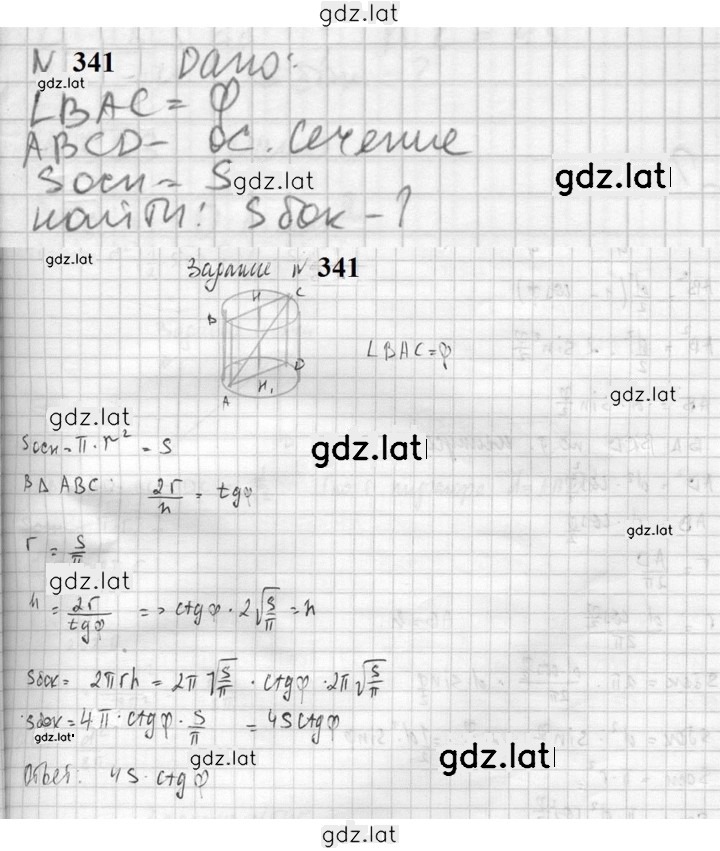 gdz.lat
N 341 Дано:
gdz.lat
∠BAC = φ
ABCD – ос. сечение
Sосн = S
gdz.lat
gdz.lat
найти: Sбок – ?
gdz.lat
Задание N 341
H C
B
D
H₁
A
∠BAC = φ
gdz.lat
gdz.lat
gdz.lat
Sосн = π · r² = S
В Δ ABC: 2r/h = tgφ
gdz.lat
r = S/π
gdz.lat
h = 2r/tgφ => ctgφ · 2√S/π = h
Sбок = 2πrh = 2π√S/π · ctgφ · 2π√S/π
Sбок = 4π · ctgφ · S/π = 4Sctgφ
gdz.lat
gdz.lat
gdz.lat
Ответ: 4S · ctgφ
gdz.lat